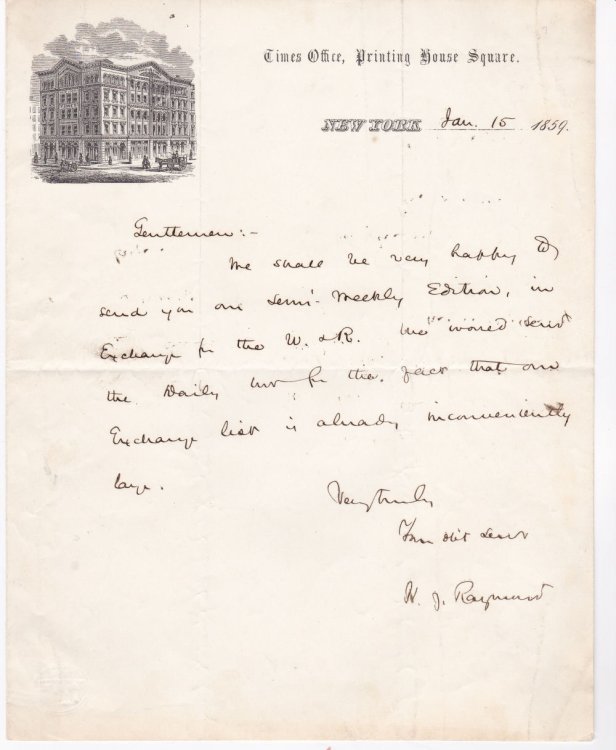 Times Office, Printing House Square.
NEW YORK Jan. 15 1859.
Gentlemen:-
We shall be very happy to
send you our Semi-Weekly Edition, in
Exchange for the W. & R. We would send
the Daily but for the fact that our
Exchange list is already inconveniently
large.
Very truly
Your obt Servt
H. J. Raymond